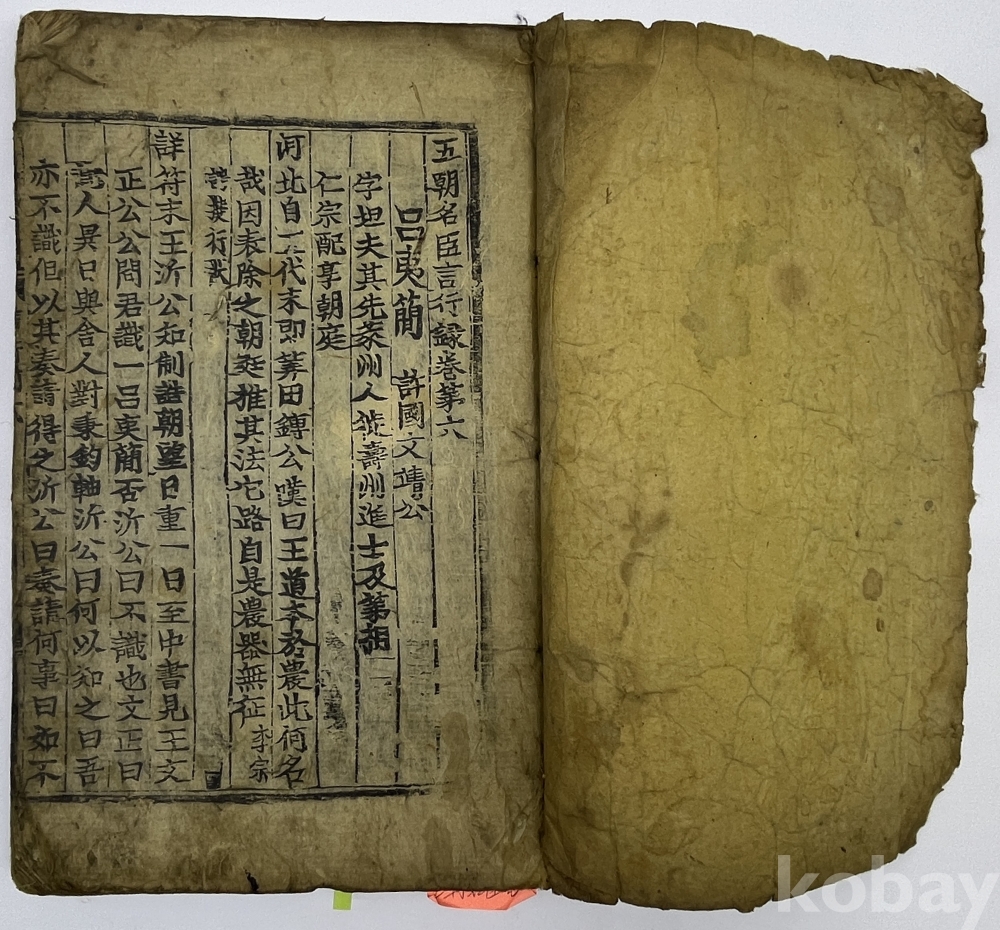 五朝名臣言行録巻第六
呂夷簡 許國文靖公
字坦夫其先萊州人徙壽州進士及第相
仁宗配享朝庭
河北自五代末即筭田鎛公嘆曰王道本於農此何名
哉因表除之朝廷推其法它路自是農器無征 李宗
行狀
詳符末王沂公知制誥朝望日重一日至中書見王文
正公公問君識一呂夷簡否沂公曰不識也文正曰
此人異日與舍人對秉鈞軸沂公曰何以知之曰吾
亦不識但以其奏請得之沂公曰奏請何事曰如不
kobay